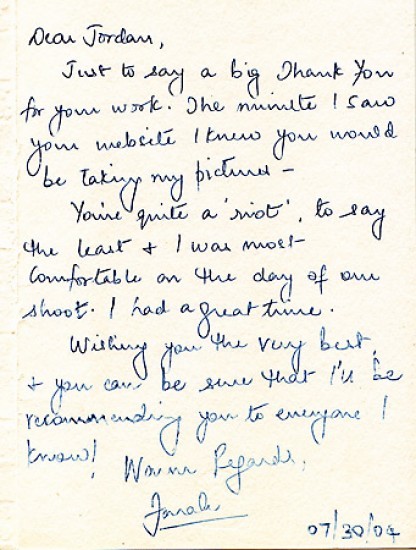 Dear Jordan,
Just to say a big Thank You
for your work. The minute I saw
your website I knew you would
be taking my pictures -
You're quite a 'riot', to say
the least & I was most
comfortable on the day of our
shoot. I had a great time.
Wishing you the very best,
& you can be sure that I'll be
recommending you to everyone I
know! Warm Regards,
07/30/04